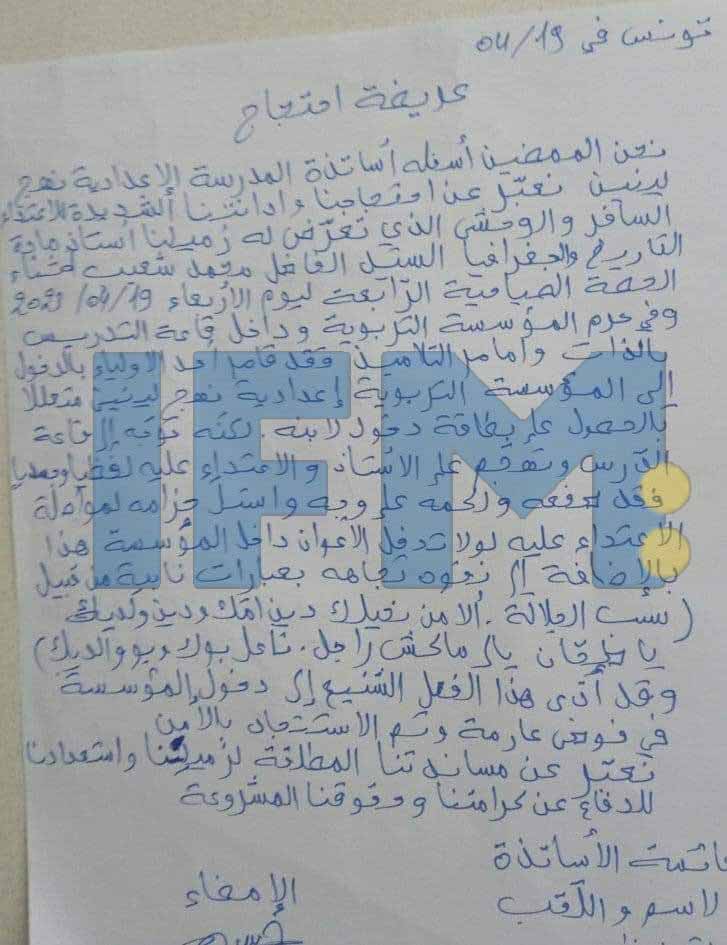 تونس في 04/19
عريضة احتجاج
نحن الممضين أسفله أساتذة المدرسة الإعدادية نهج
لينين نعبّر عن احتجاجنا وادانتنا الشديدة للاعتداء
السافر والوحشي الذي تعرّض له زميلنا أستاذ مادة
التاريخ والجغرافيا السيد الفاضل محمد شعيب أثناء
الحصة الصباحية الرّابعة ليوم الأربعاء 19/04/2023
وفي حرم المؤسسة التربوية وداخل قاعة التدريس
بالذات وأمام التلاميذ فقد قام أحد الأولياء بالدخول
إلى المؤسسة التربوية إعدادية نهج لينين متعللا
بالحصول على بطاقة دخول لابنه. لكنه توجّه إلى قاعة
الدّرس وتهجّم على الأستاذ والاعتداء عليه لفظيا وماديا
فقد دفعه ولكمه على وجهه واستلّ حزامه لمواصلة
الاعتداء عليه لولا تدخل الأعوان داخل المؤسسة هذا
بالإضافة إلى تفوه تجاهه بعبارات نابية من قبيل
(سب الجلالة. ألا من دين امّك ودين والديك
يا طحّان يالي ماكش راجل. ناعل بوك وبو والديك)
وقد أدّى هذا الفعل الشنيع إلى دخول المؤسسة
في فوضى عارمة وتم الاستنجاد بالأمن
نعبّر عن مساندتنا المطلقة لزميلنا واستعدادنا
للدفاع عن كرامتنا وحقوقنا المشروعة
قائمة الأساتذة
الاسم واللّقب الإمضاء
IFM